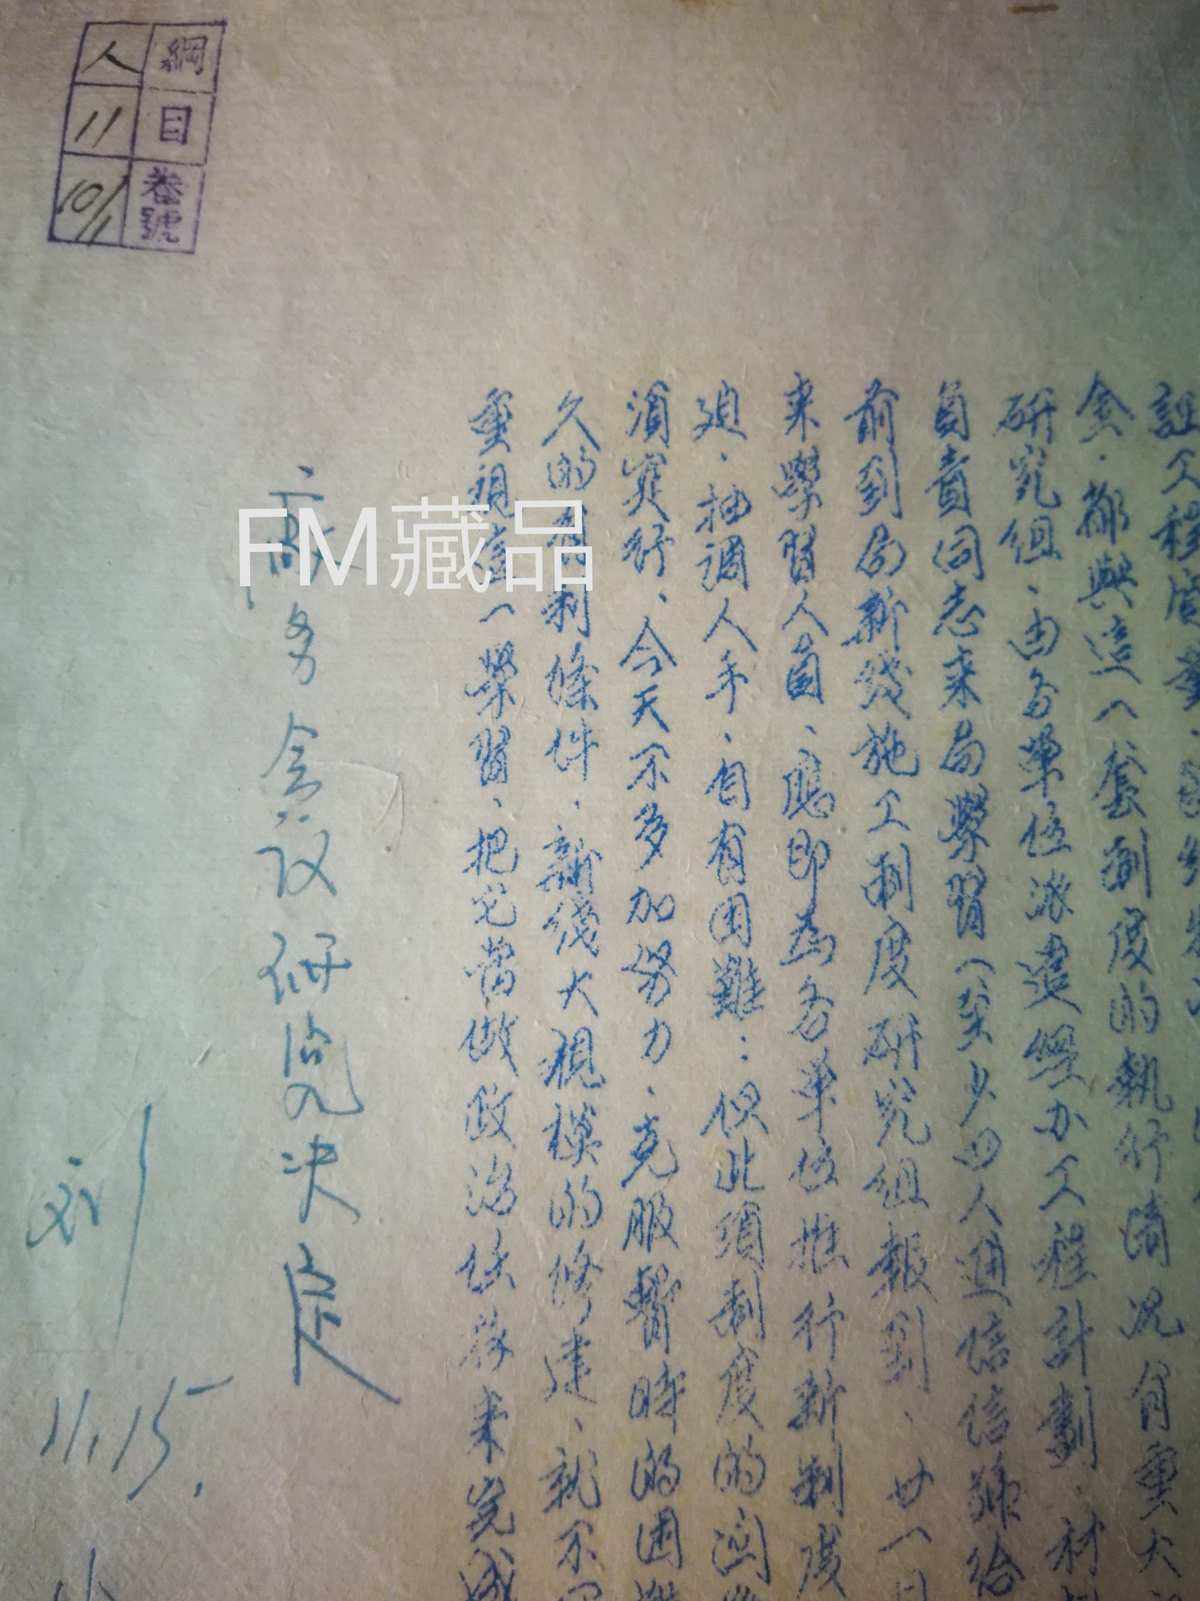 証工程
金、都與這一套制度的執行情况有重大
研究組、由各單位派遣經办工程計劃、材
負責同志来局學習(至少四人連信信號给
前到局新綫施工制度研究組報到、廿一日
来學習人員、應即為各單位推行新制度
迫、抽調人手、自有困難:但此項制度的
須实行、今天不多加努力、克服暫時的困難
久的有利條件、新綫大規模的修建、就不
重視這一學習、把它當做政治任務来完成
務会议研究决定
刘
11.15.
綱目卷號
人 11 10/11
FM藏品